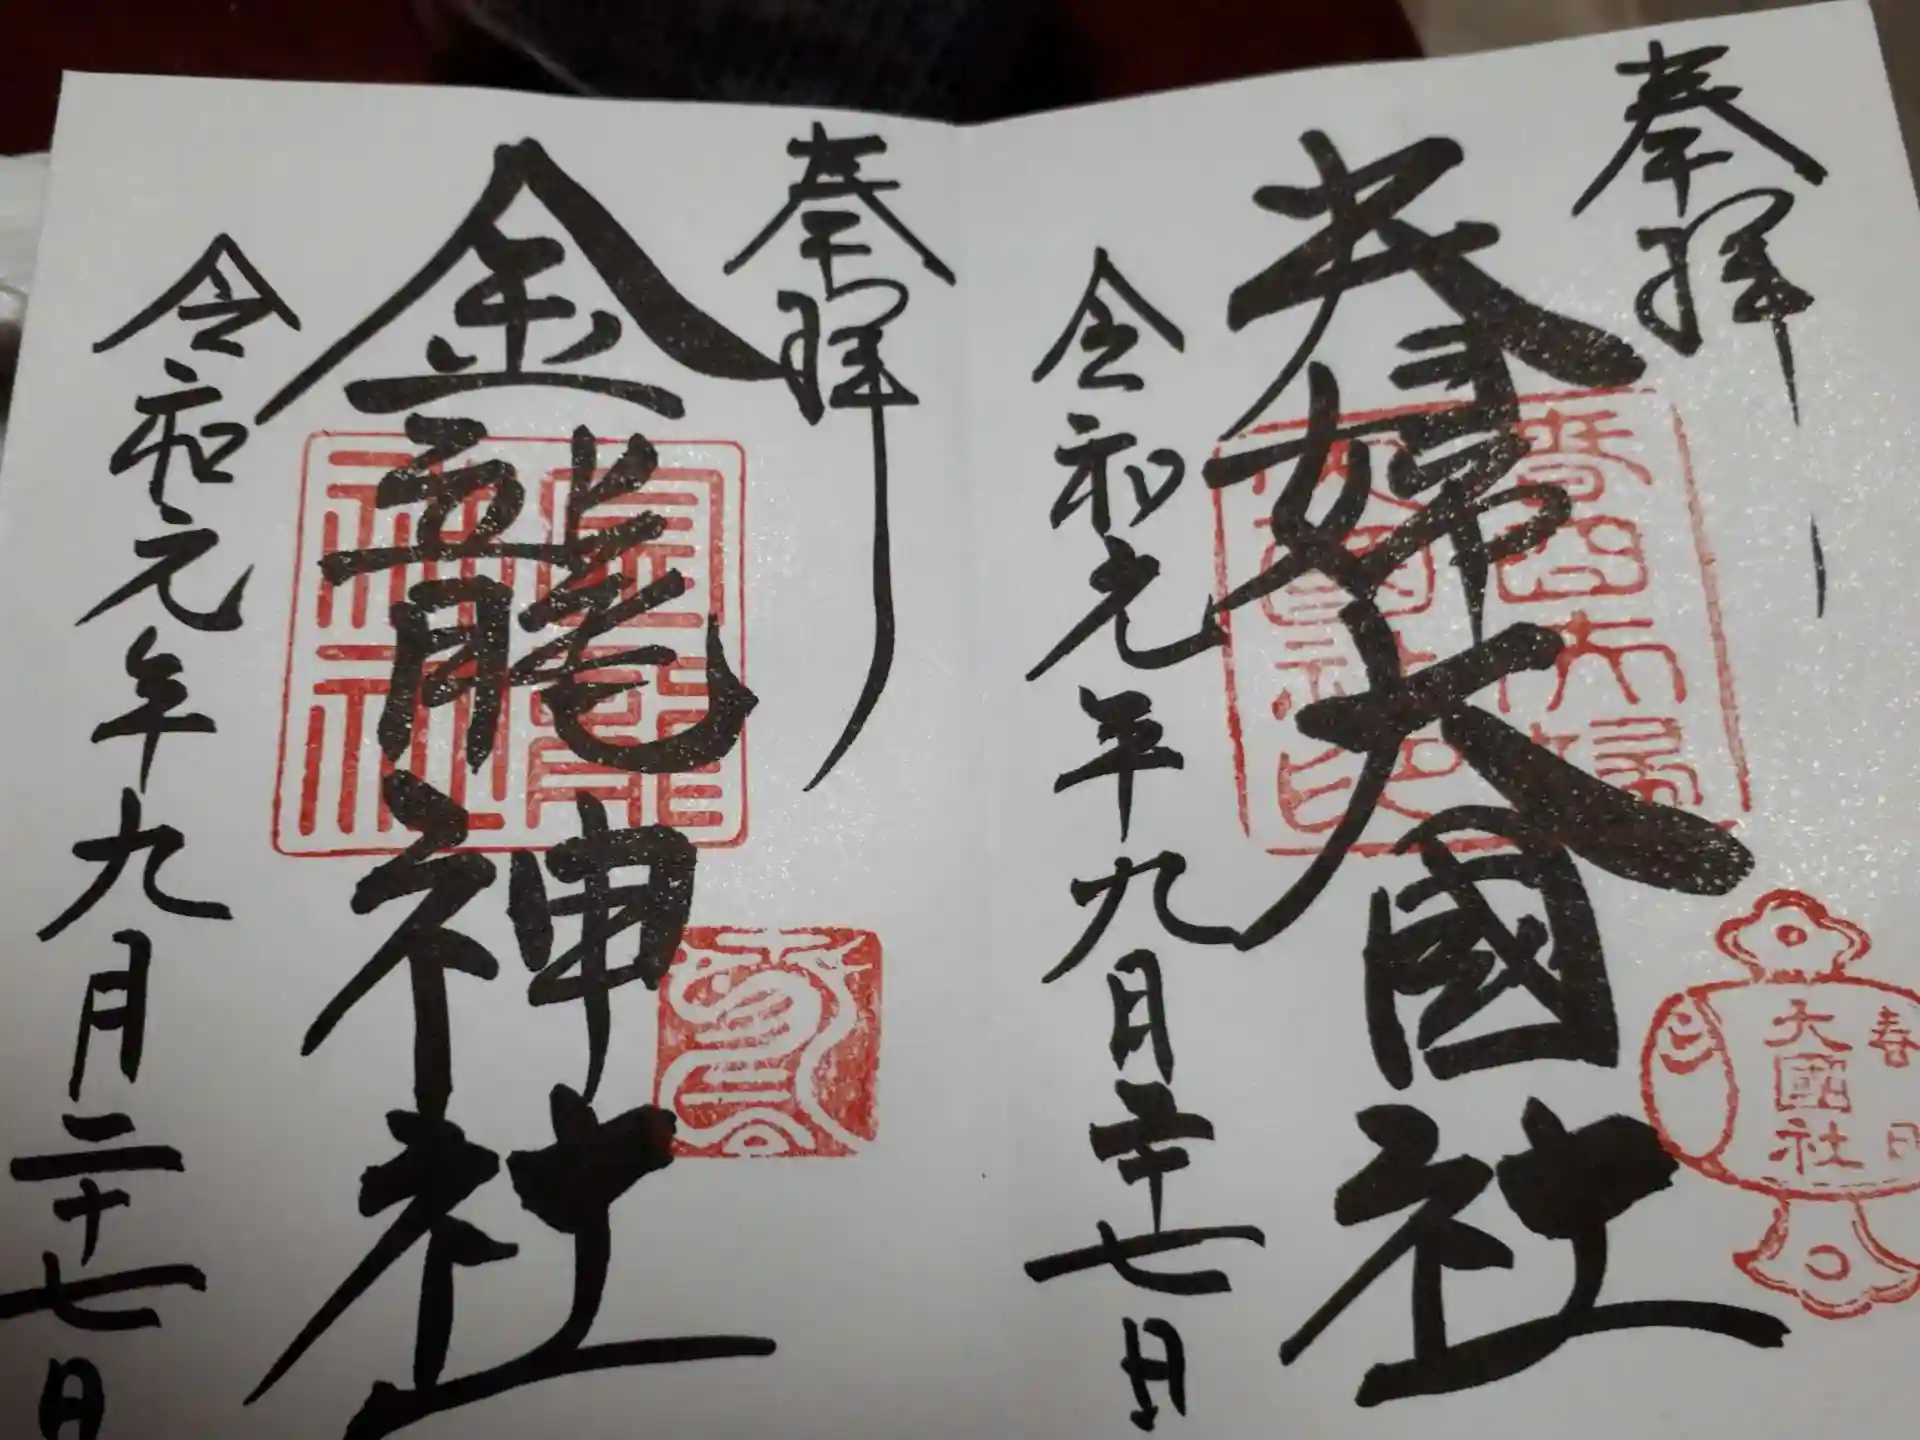 奉拝
夫婦大國社
令和元年九月二十七日
春日
大國社
奉拝
金龍神社
令和元年九月二十七日
金龍
神社